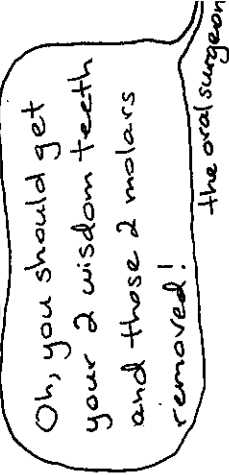 Oh, you should get
your 2 wisdom teeth
and those 2 molars
removed!
the oral surgeon